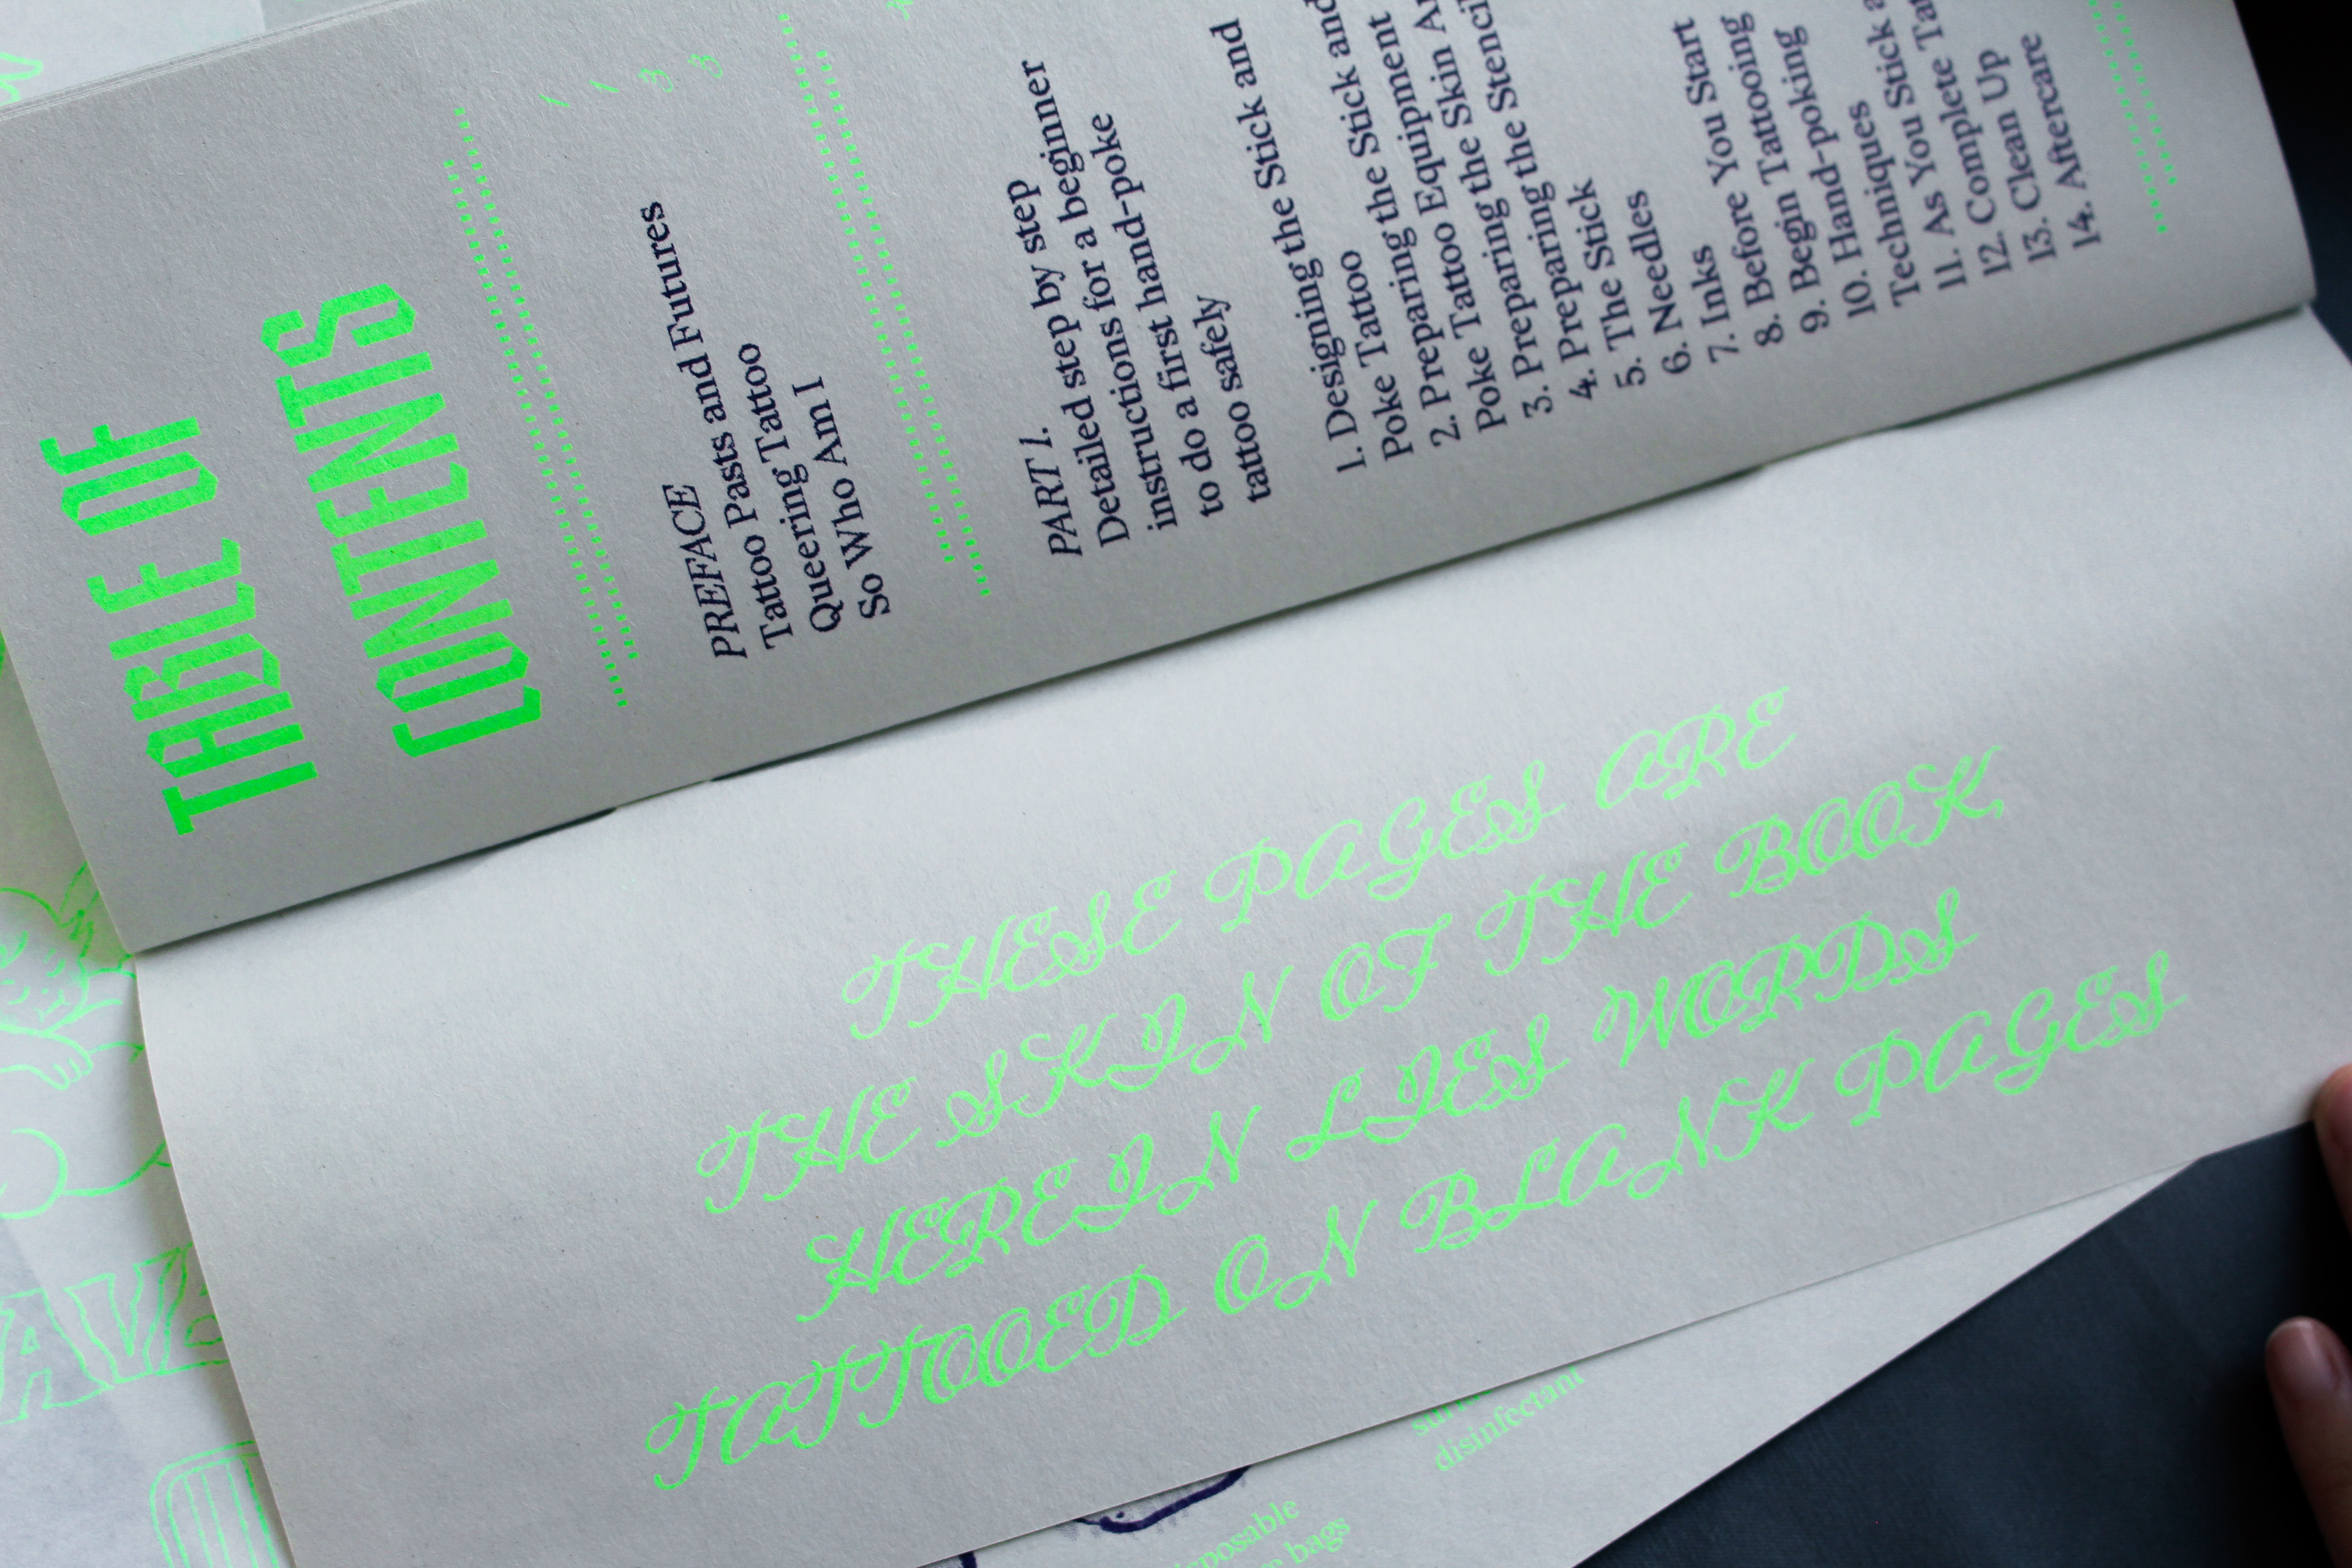 TABLE OF
CONTENTS
PREFACE
Tattoo Pasts and Futures
Queering Tattoo
So Who Am I
PART 1.
Detailed step by step
instructions for a beginner
to do a first hand-poke
tattoo safely
1. Designing the Stick and
Poke Tattoo
2. Preparing the Stick and
Poke Tattoo Equipment
3. Preparing the Skin
4. Preparing the
5. The Stick
6. Needles
7. Inks
8. Before You Start
9. Begin Tattooing
10. Hand-poking
Techniques
11. As You Stick
12. Complete
13. Clean Up
14. Aftercare
1
1
3
3
THESE PAGES ARE
THE SKIN OF THE BOOK,
HEREIN LIES WORDS
TATTOOED ON BLANK PAGES
disinfectant
bags